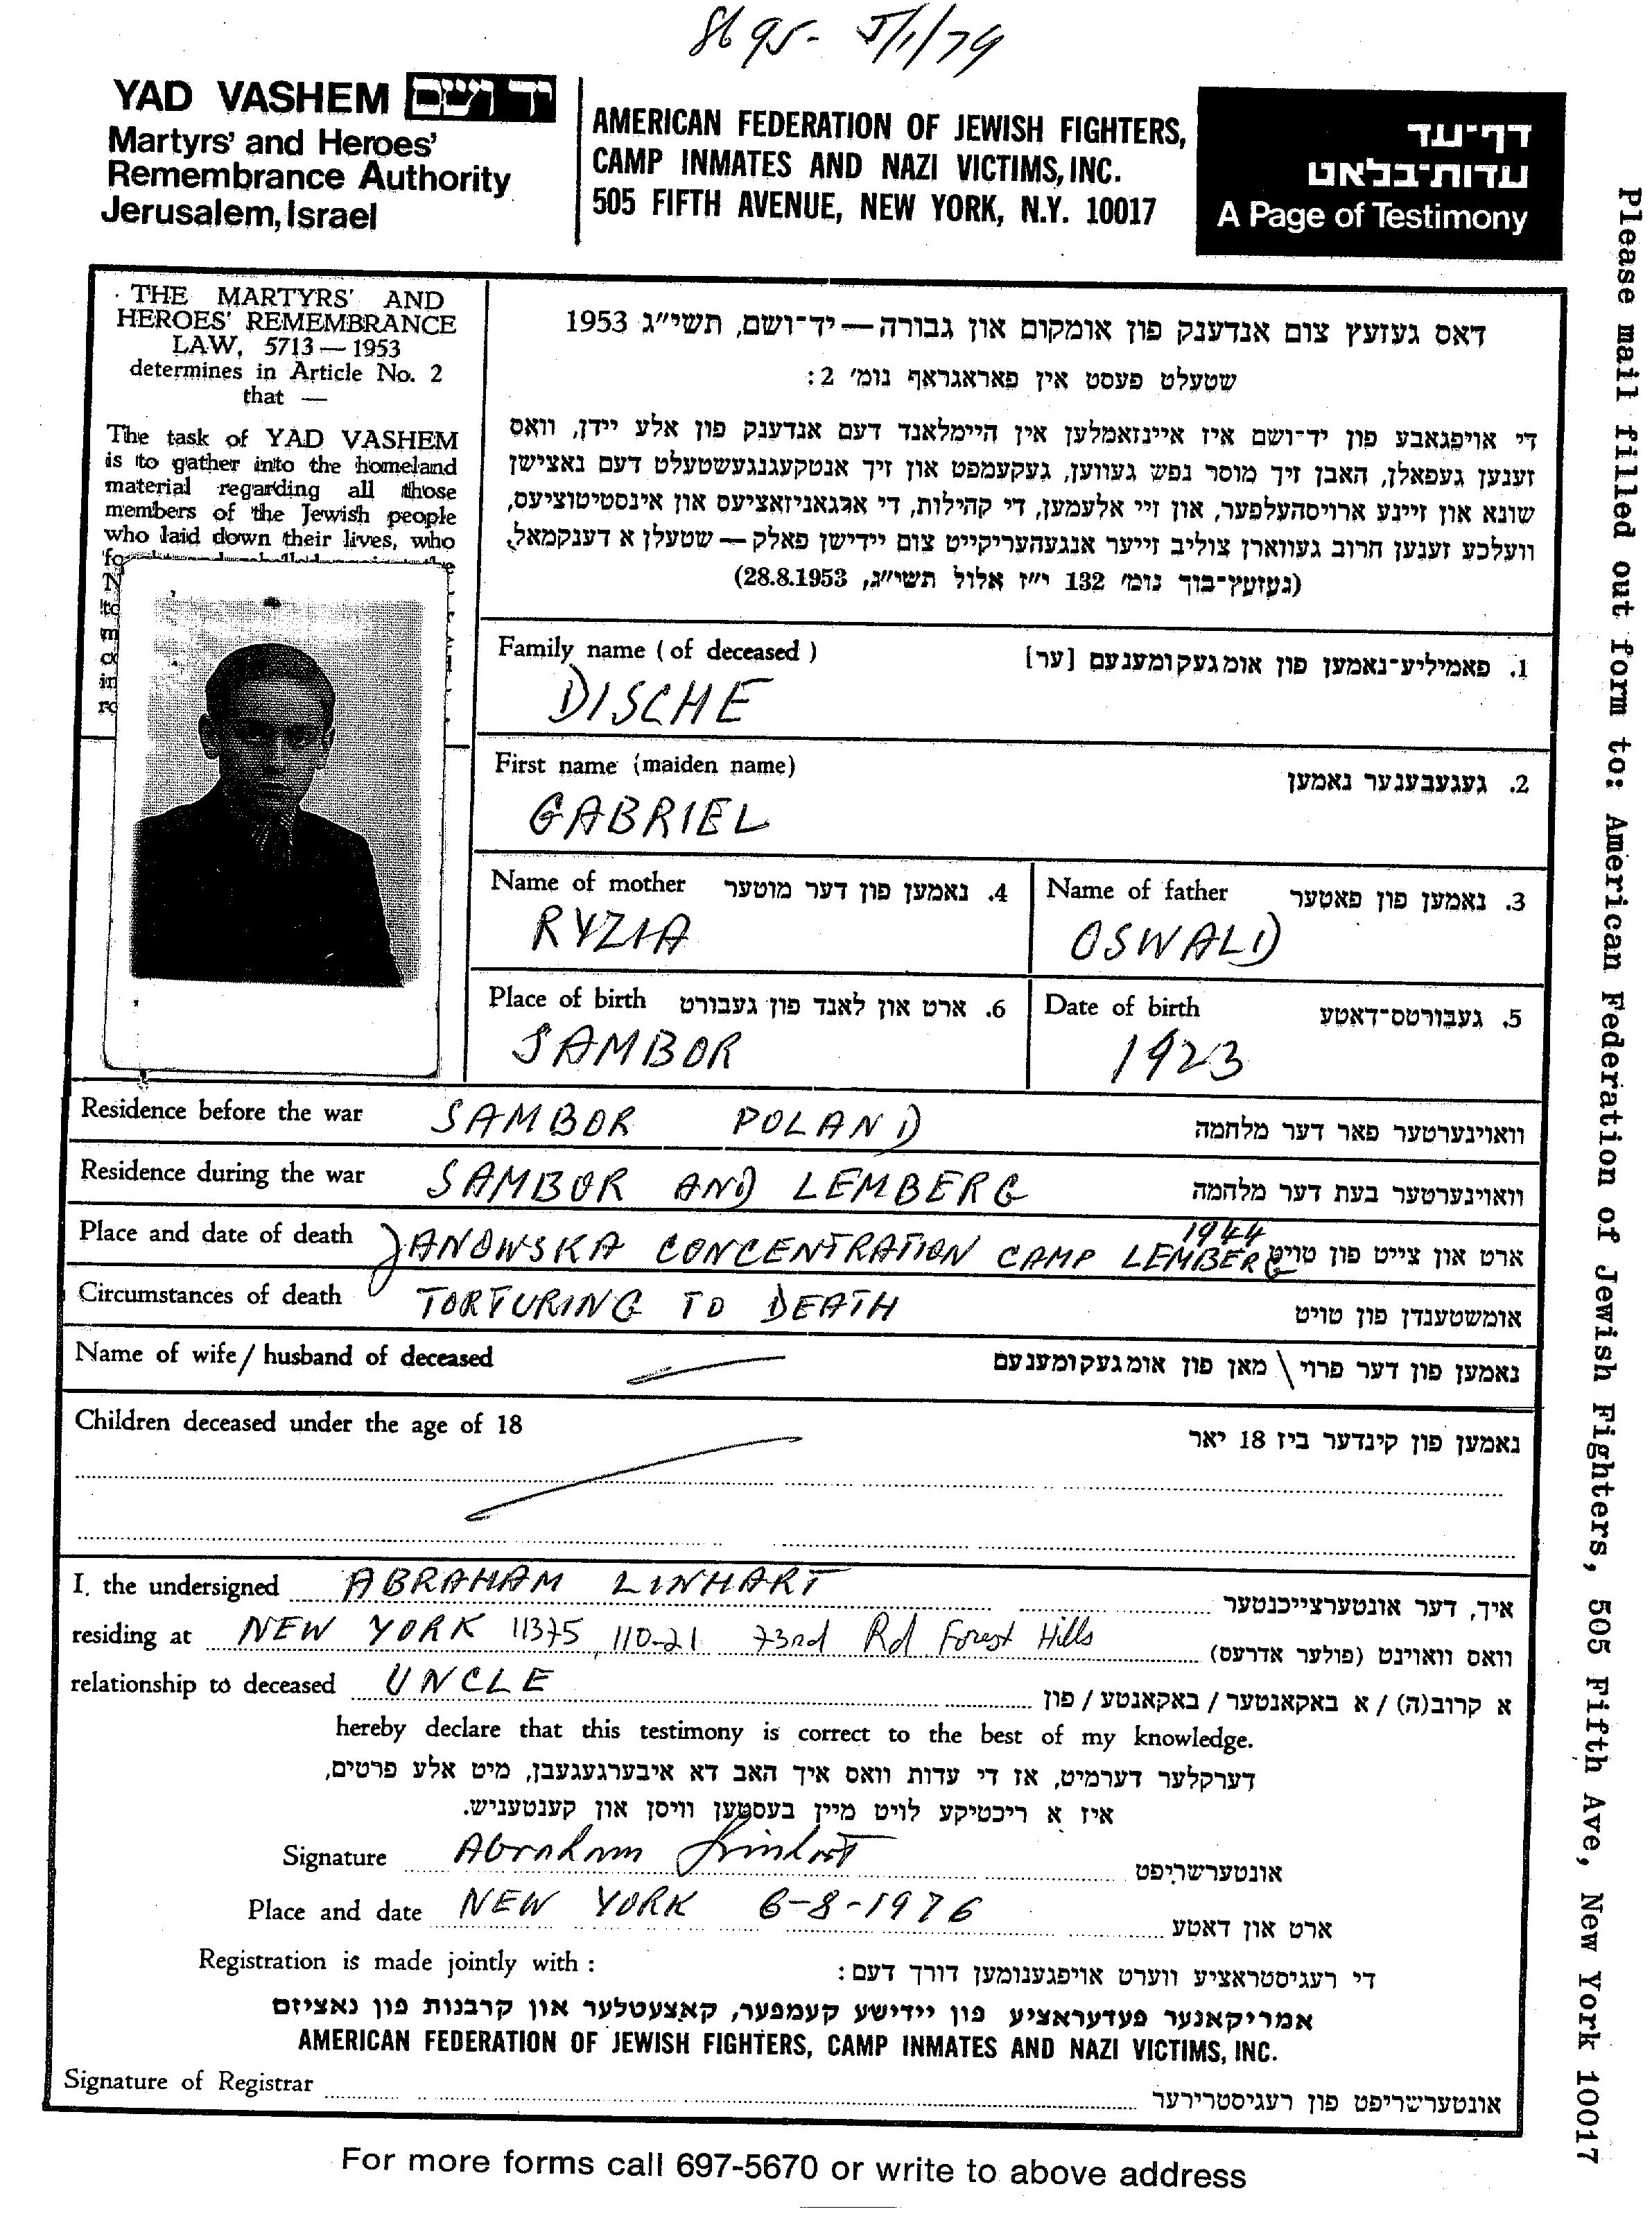 8695- 5/1/79
YAD VASHEM יד ושם
Martyrs' and Heroes'
Remembrance Authority
Jerusalem, Israel
AMERICAN FEDERATION OF JEWISH FIGHTERS,
CAMP INMATES AND NAZI VICTIMS, INC.
505 FIFTH AVENUE, NEW YORK, N.Y. 10017
דף־עד
עדות־בלאט
A Page of Testimony
THE MARTYRS' AND
HEROES' REMEMBRANCE
LAW, 5713 — 1953
determines in Article No. 2
that —
The task of YAD VASHEM
is to gather into the homeland
material regarding all those
members of the Jewish people
who laid down their lives, who
דאס געזעץ צום אנדענק פון אומקום און גבורה — יד־ושם, תשי״ג 1953
שטעלט פעסט אין פאראגראף נומ׳ 2:
די אויפגאבע פון יד־ושם איז איינזאמלען אין היימלאנד דעם אנדענק פון אלע יידן, וואס
זענען געפאלן, האבן זיך מוסר נפש געווען, געקעמפט און זיך אנטקעגנגעשטעלט דעם נאצישן
שונא און זיינע ארויסהעלפער, און זיי אלעמען, די קהילות, די ארגאניזאציעס און אינסטיטוציעס,
וועלכע זענען חרוב געווארן צוליב זייער אנגעהעריקייט צום יידישן פאלק — שטעלן א דענקמאל.
(געזעץ־בוך נומ׳ 132 י״ז אלול תשי״ג, 28.8.1953)
Family name (of deceased) 1. פאמיליע־נאמען פון אומגעקומענעם [ער]
DISCHE
First name (maiden name) 2. געגעבענער נאמען
GABRIEL
Name of mother 4. נאמען פון דער מוטער
RYZIA
Name of father 3. נאמען פון פאטער
OSWALD
Place of birth 6. ארט און לאנד פון געבורט
SAMBOR
Date of birth 5. געבורטס־דאטע
1923
Residence before the war SAMBOR POLAND וואוינערטער פאר דער מלחמה
Residence during the war SAMBOR AND LEMBERG וואוינערטער בעת דער מלחמה
Place and date of death JANOWSKA CONCENTRATION CAMP LEMBERG 1944 ארט און צייט פון טויט
Circumstances of death TORTURING TO DEATH אומשטענדן פון טויט
Name of wife / husband of deceased נאמען פון דער פרוי \ מאן פון אומגעקומענעם
Children deceased under the age of 18 נאמען פון קינדער ביז 18 יאר
I, the undersigned ABRAHAM LINHART איך, דער אונטערצייכנטער
residing at NEW YORK 11375 110-21 73rd Rd Forest Hills וואס וואוינט (פולער אדרעס)
relationship to deceased UNCLE א קרוב(ה) / א באקאנטער / באקאנטע / פון
hereby declare that this testimony is correct to the best of my knowledge.
דערקלער דערמיט, אז די עדות וואס איך האב דא איבערגעגעבן, מיט אלע פרטים,
איז א ריכטיקע לויט מיין בעסטען וויסן און קענטעניש.
Signature Abraham Linhart אונטערשריפט
Place and date NEW YORK 6-8-1976 ארט און דאטע
Registration is made jointly with : די רעגיסטראציע ווערט אויפגענומען דורך דעם:
אמריקאנער פעדעראציע פון יידישע קעמפער, קאצעטלער און קרבנות פון נאציזם
AMERICAN FEDERATION OF JEWISH FIGHTERS, CAMP INMATES AND NAZI VICTIMS, INC.
Signature of Registrar אונטערשריפט פון רעגיסטרירער
For more forms call 697-5670 or write to above address
Please mail filled out form to: American Federation of Jewish Fighters, 505 Fifth Ave, New York 10017